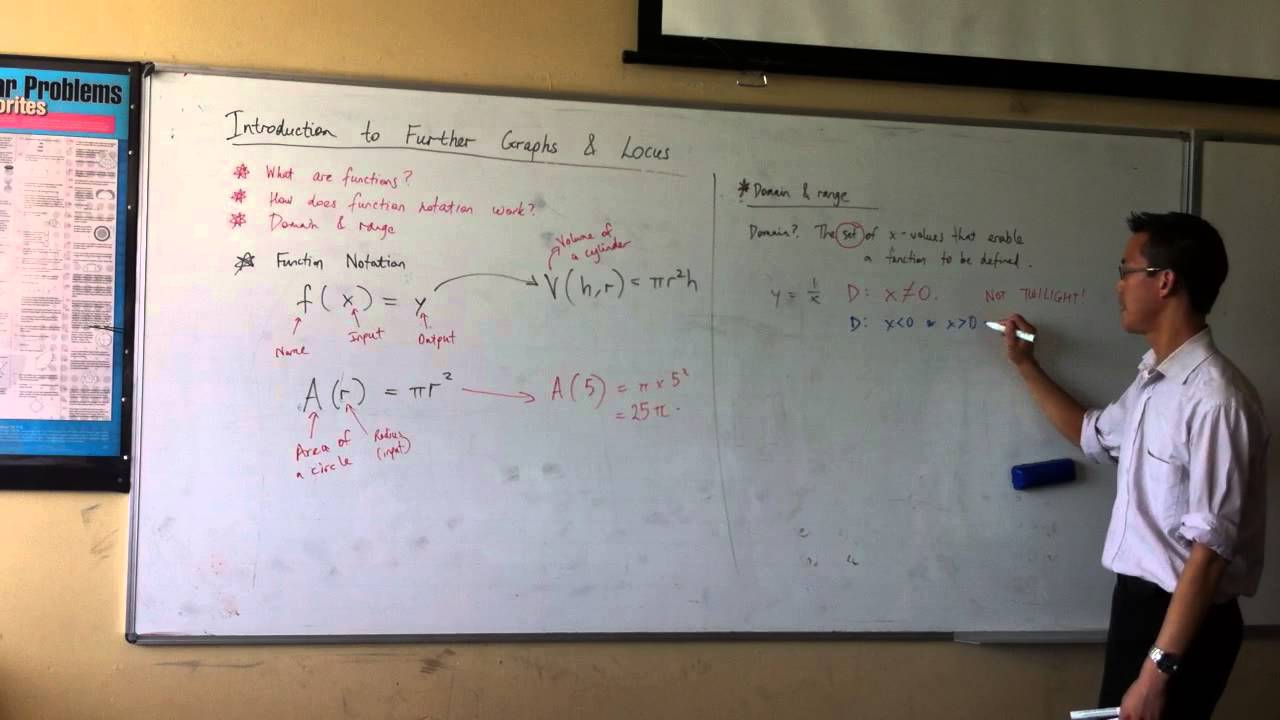 ar Problems
orites
Introduction to Further Graphs & Locus
* What are functions?
* How does function notation work?
* Domain & range
* Function Notation
f(x) = y
Name
Input
Output
Volume of
a cylinder
V(h,r) = πr²h
A(r) = πr²
Area of
a circle
Radius
(input)
A(5) = π × 5²
= 25π.
* Domain & range
Domain? The set of x-values that enable
a function to be defined.
y = 1/x D: x≠0. NOT TWILIGHT!
D: x<0 x>0